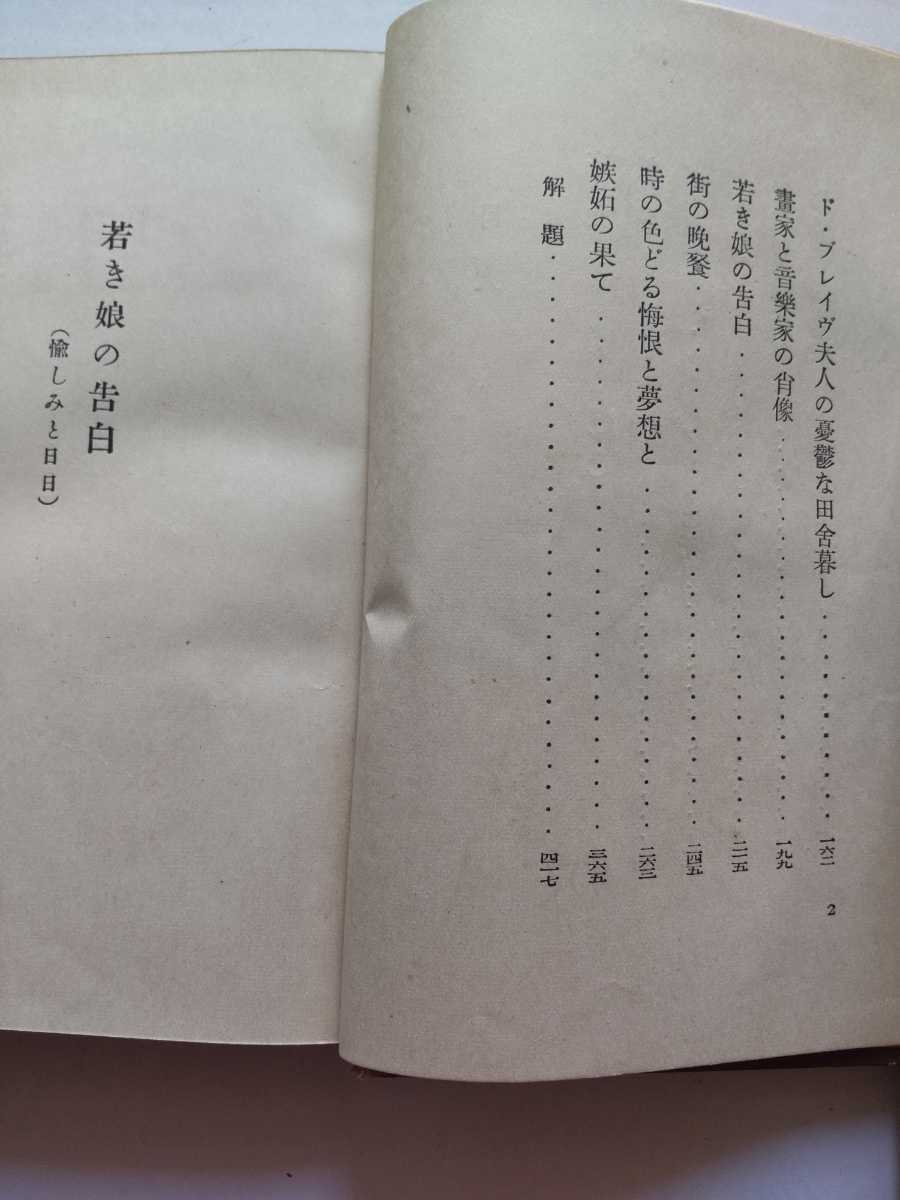 ド・ブレイヴ夫人の憂鬱な田舍暮し・・・・・・・・・・・一六二
畫家と音樂家の肖像・・・・・・・・・・・・・・・・・・一九九
若き娘の告白・・・・・・・・・・・・・・・・・・・・・二一五
街の晩餐・・・・・・・・・・・・・・・・・・・・・・・二四五
時の色どる悔恨と夢想と・・・・・・・・・・・・・・・・二六三
嫉妬の果て・・・・・・・・・・・・・・・・・・・・・・三六五
解題・・・・・・・・・・・・・・・・・・・・・・・・・四一七
2
若き娘の告白
（愉しみと日日）